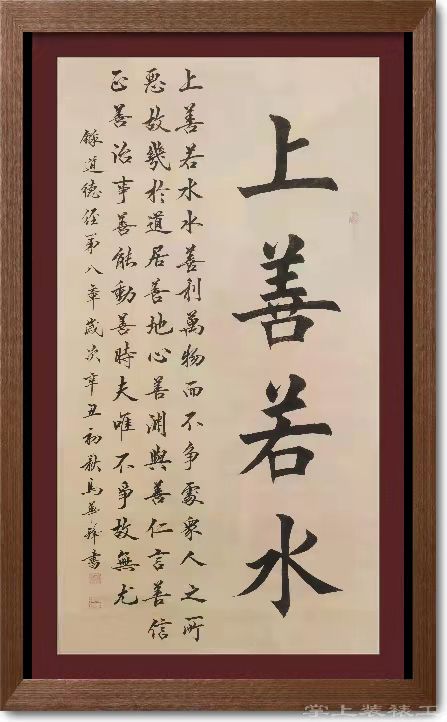 上善若水
上善若水水善利萬物而不争處衆人之所
惡故幾於道居善地心善渊與善仁言善信
正善治事善能動善時夫唯不爭故無尤
錄道德經第八章歲次辛丑初秋馬書
掌上装裱工